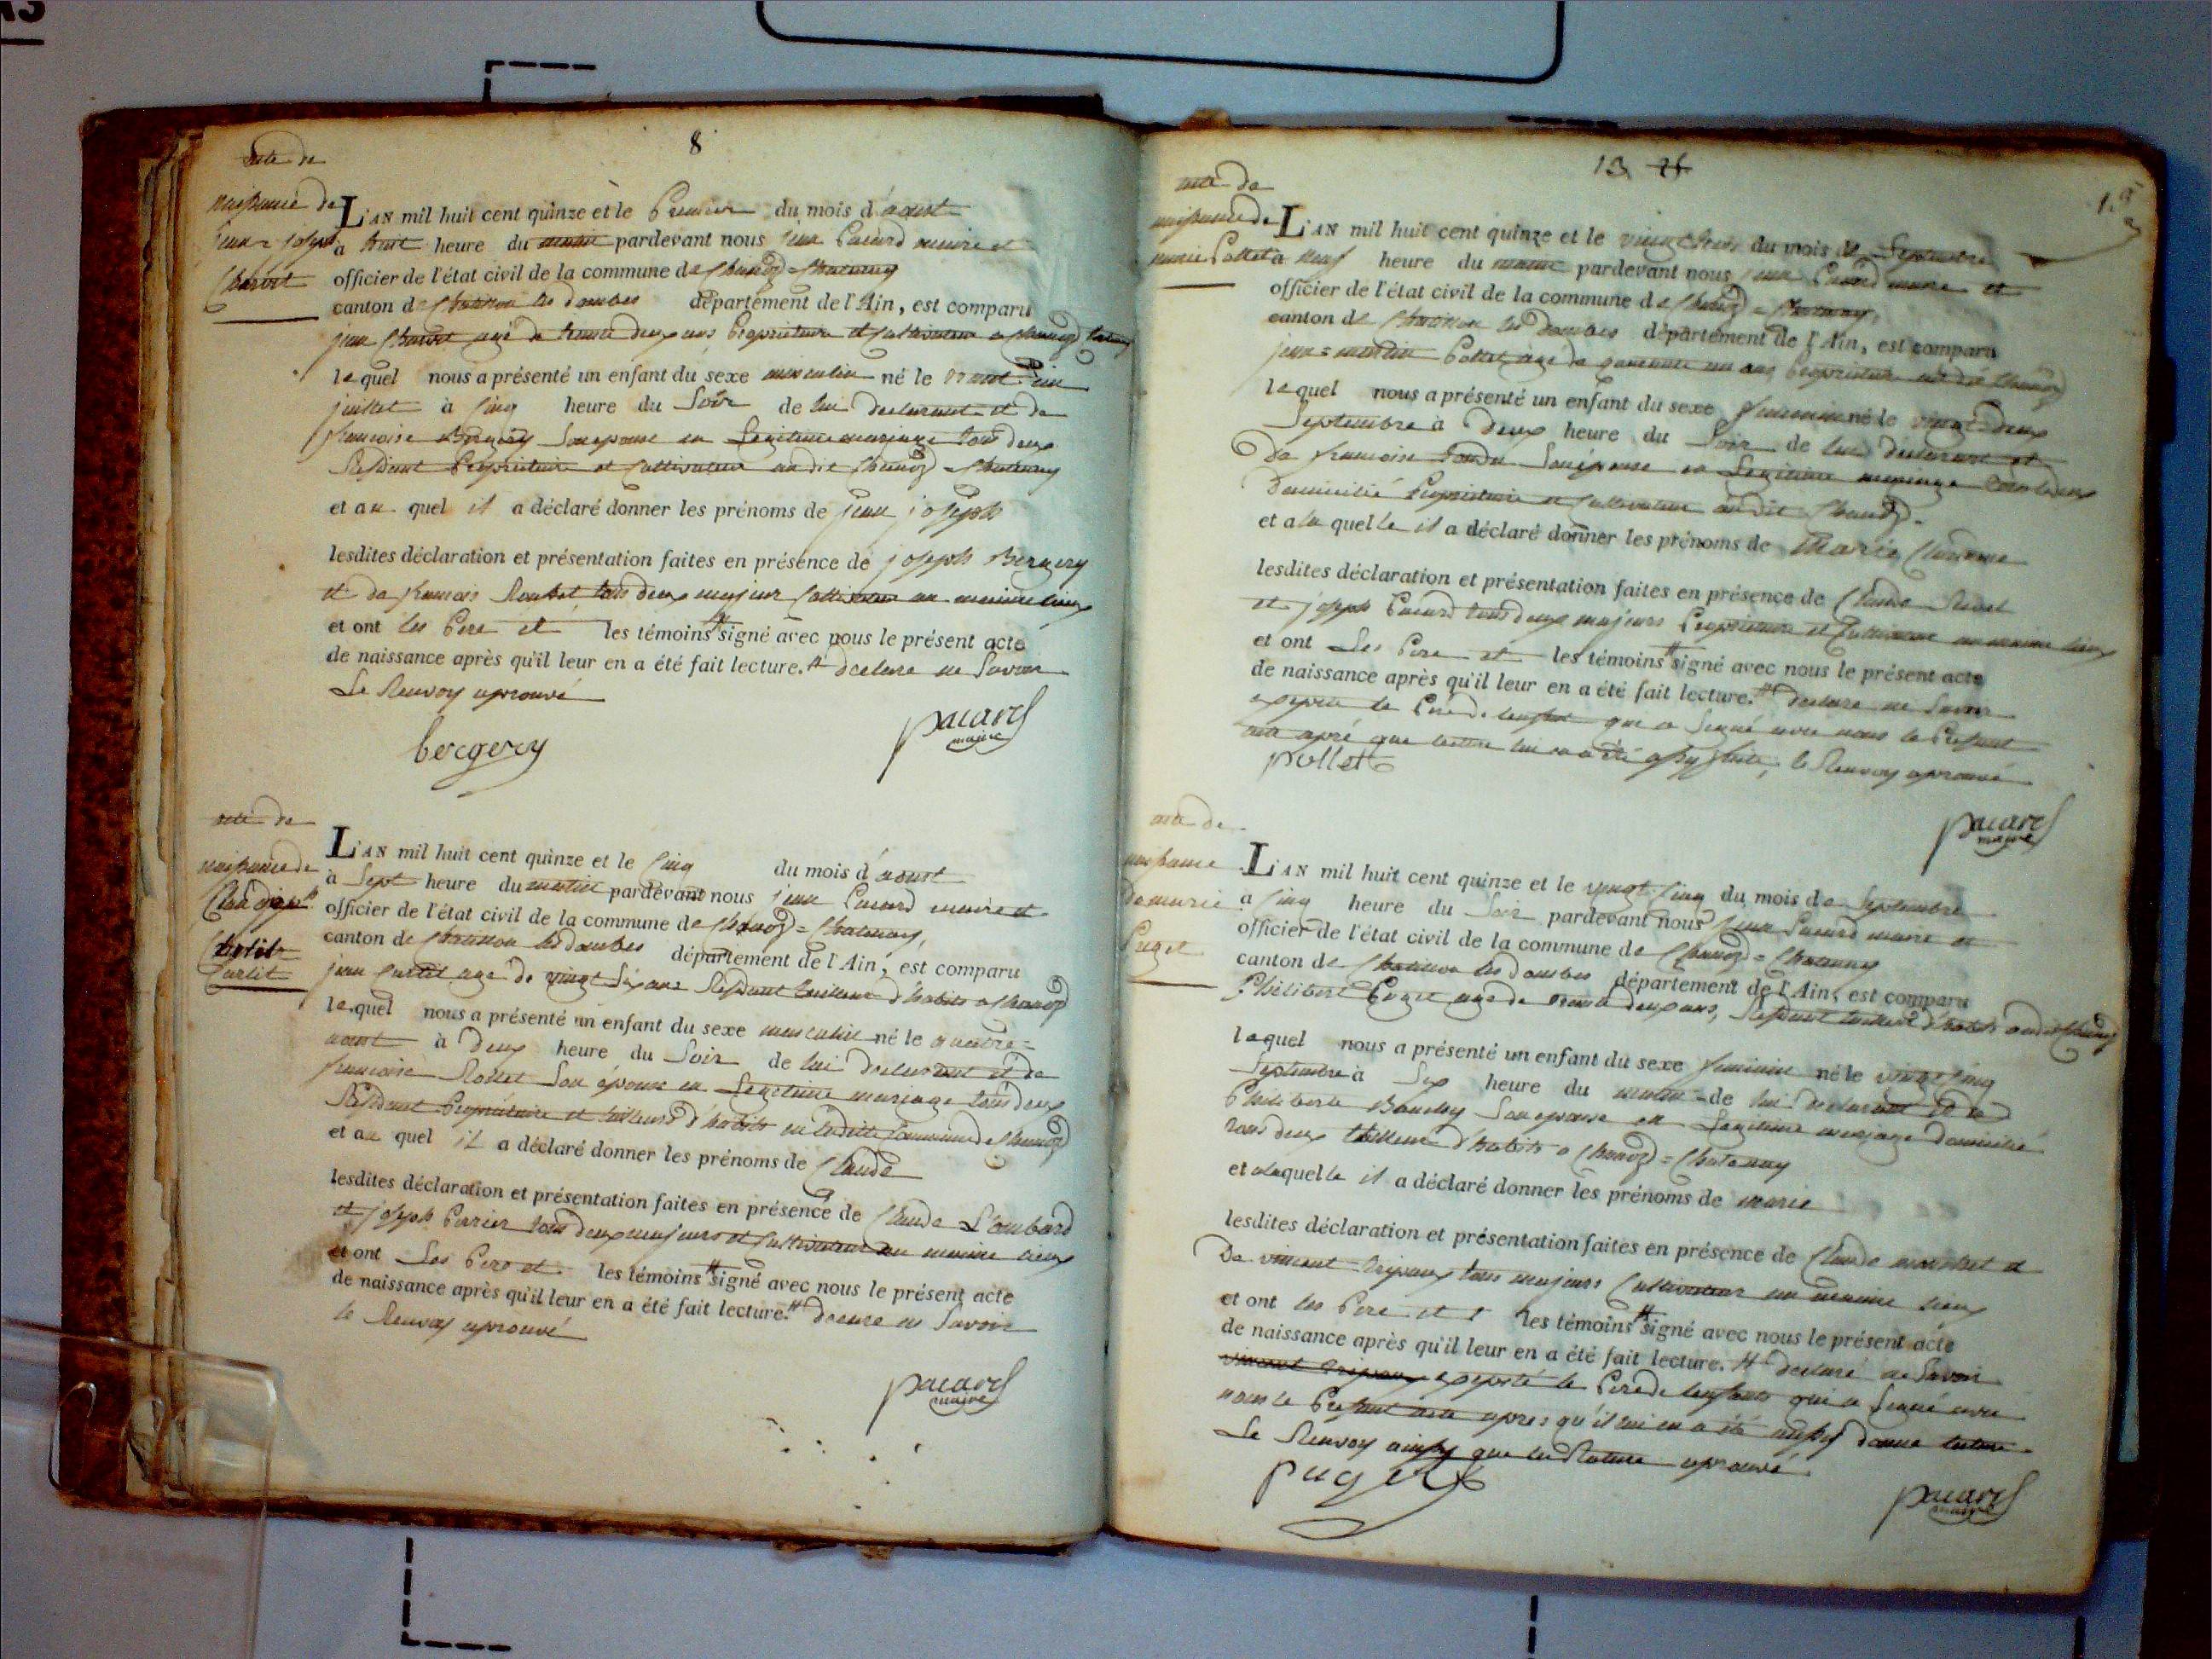 8
acte de
naissance de
jean = joseph
Charvet
L'AN mil huit cent quinze et le Premier du mois d'aoust
à huit heure du matin pardevant nous jean Pacard maire et
officier de l'état civil de la commune de Chanoz = Chatenay
canton de Chatillon les dombes département de l'Ain, est comparu
jean Charvet agé de trente deux ans Propriétaire et Cultivateur a Chanoz
lequel nous a présenté un enfant du sexe masculin né le trent un
juillet à Cinq heure du Soir de lui declarant et de
francoise Bergery Son epouse en Legitime mariage tous deux
Résidant Propriétaire et Cultivateur au dit Chanoz = Chatenay
et au quel il a déclaré donner les prénoms de jean joseph
lesdites déclaration et présentation faites en présence de joseph Bergery
et de francois tous deux majeur Cultivateur au meme lieux
et ont les Pere et les témoins # signé avec nous le présent acte
de naissance après qu'il leur en a été fait lecture. # declare ne Savoir
Le Renvoy aprouvé
bergery
pacard
maire
acte de
naissance de
Claude
Curtit
L'AN mil huit cent quinze et le Cinq du mois d'aoust
à Sept heure du matin pardevant nous jean Pacard maire et
officier de l'état civil de la commune de Chanoz = Chatenay,
canton de Chatillon les dombes département de l'Ain, est comparu
jean Curtit agé de vingt Six ans Résidant tailleur d'habits a Chanoz
lequel nous a présenté un enfant du sexe masculin né le quatre =
aoust à Deux heure du Soir de lui declarant et de
francoise Son épouse en Legitime mariage tous deux
Résidant Propriétaire et tailleurs d'habits en laditte Commune de Chanoz
et au quel il a déclaré donner les prénoms de Claude
lesdites déclaration et présentation faites en présence de Claude L'ombard
et joseph Perrier tous deux majeurs et Cultivateur au meme lieux
et ont Les Pere et les témoins # signé avec nous le présent acte
de naissance après qu'il leur en a été fait lecture. # declare ne Savoir
le Renvoy aprouvé
pacard
maire
13
acte de
naissance de
marie Pollet
L'AN mil huit cent quinze et le vingt trois du mois de Septembre
à neuf heure du matin pardevant nous jean Pacard maire et
officier de l'état civil de la commune de Chanoz = Chatenay,
canton de Chatillon les dombes département de l'Ain, est comparu
jean = Pollet agé de quarente un ans Propriétaire au dit Chanoz
lequel nous a présenté un enfant du sexe feminin né le vingt = deux
Septembre à Deux heure du Soir de lui declarant et
De francoise Son épouse en Legitime mariage tous deux
Domicilié Propriétaire et Cultivateur au dit Chanoz.
et a la quelle il a déclaré donner les prénoms de Marie Claudine
lesdites déclaration et présentation faites en présence de Claude
et joseph Pacard tous deux majeurs Propriétaire et Cultivateur au meme lieux
et ont Les Pere et les témoins # signé avec nous le présent acte
de naissance après qu'il leur en a été fait lecture. # declare ne Savoir
excepté le Pere de lenfant qui a Signé avec nous le Présent
acte apré que lecture lui en a été aussy faite, le Renvoy aprouvé
pollet
pacard
maire
acte de
naissance
de marie
Puget
L'AN mil huit cent quinze et le vingt Cinq du mois de Septembre
à Cinq heure du Soir pardevant nous jean Pacard maire et
officier de l'état civil de la commune de Chanoz = Chatenay
canton de Chatillon les dombes département de l'Ain, est comparu
Philibert Puget agé de trente deux ans, Résidant tailleur d'habits au dit Chanoz
lequel nous a présenté un enfant du sexe feminin né le vingt Cinq
Septembre à Six heure du matin = de lui declarant et de
Philiberte Son epouse en Legitime mariage domicilié
tous deux tailleur d'habits a Chanoz = Chatenay
et a laquelle il a déclaré donner les prénoms de marie
lesdites déclaration et présentation faites en présence de Claude et
De vincent tous majeurs Cultivateur au meme lieux
et ont les Pere et les témoins # signé avec nous le présent acte
de naissance après qu'il leur en a été fait lecture. # declaré ne Savoir
excepté le Pere de lenfants qui a Signé avec
nous le Présent acte apres qu'il lui en a été aussy donné lecture.
Le Renvoy ainsy que la Rature aprouvé.
puget
pacard
maire